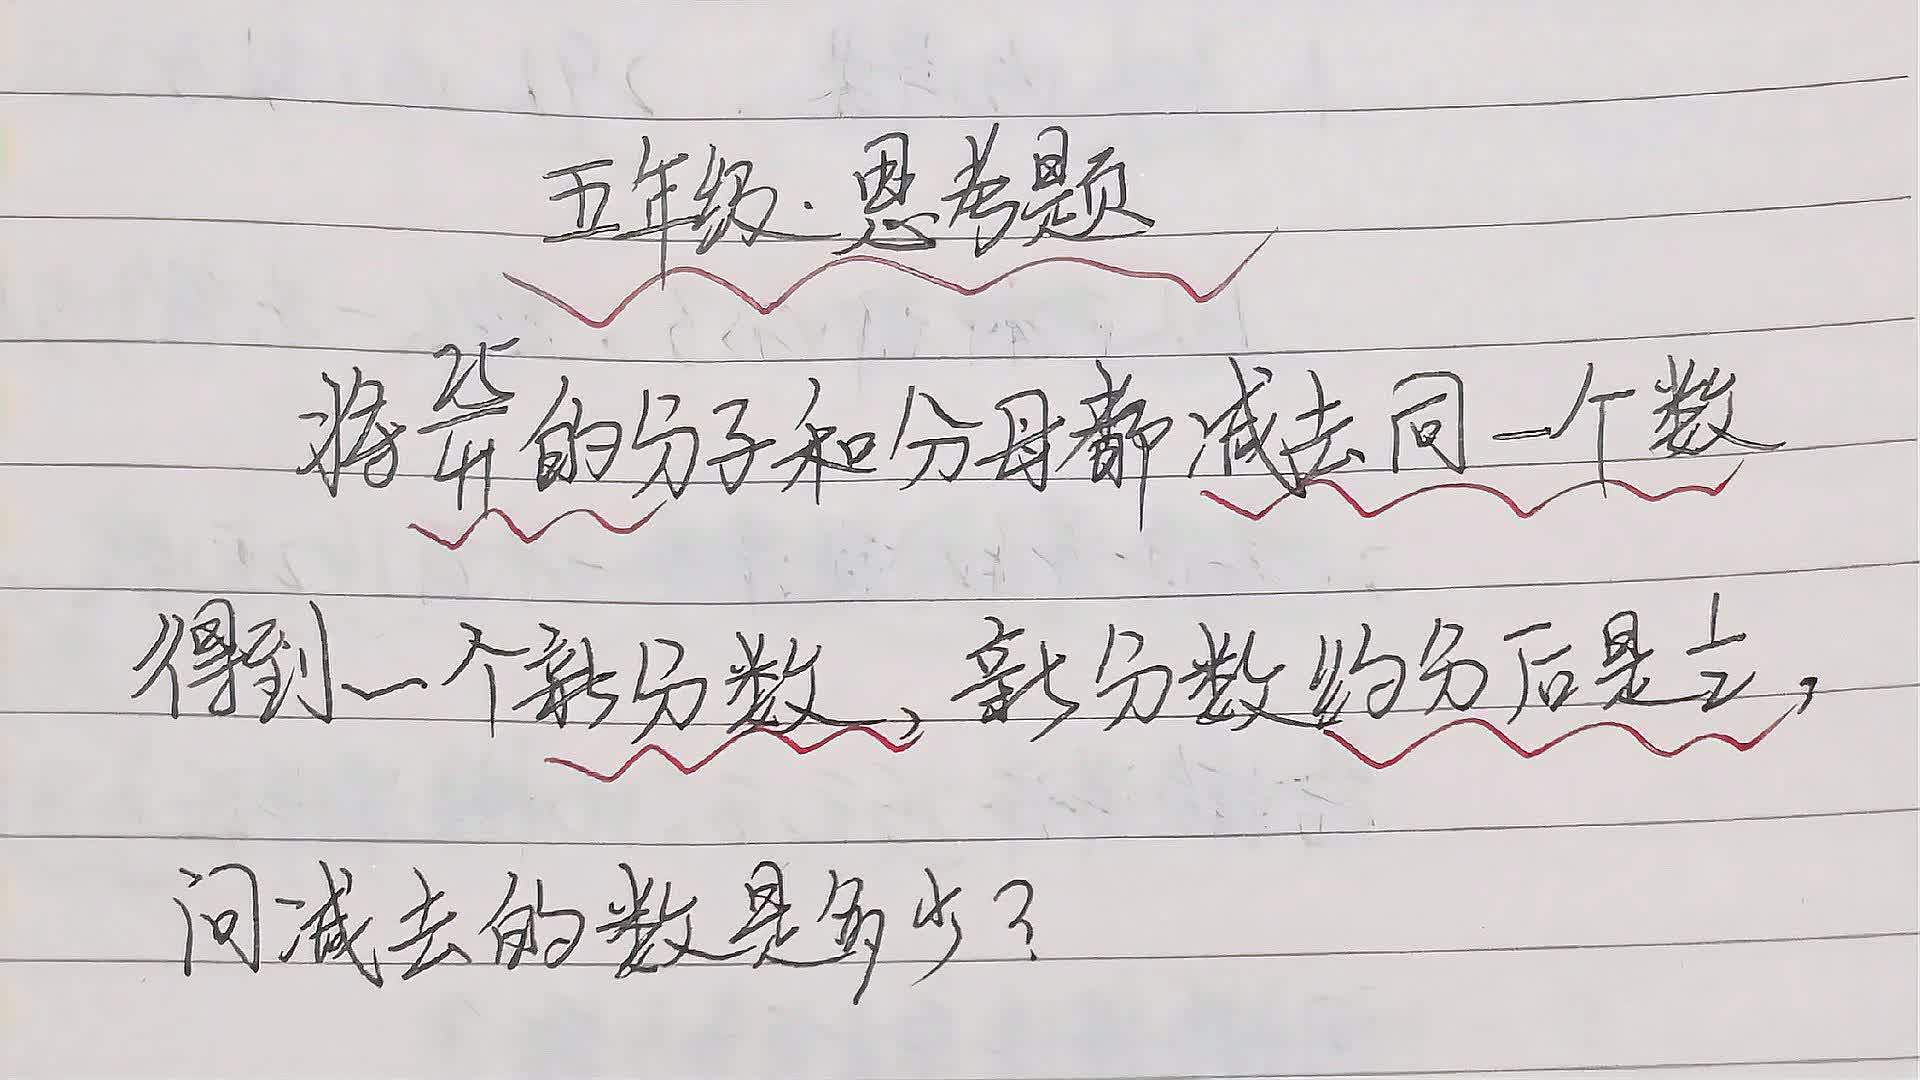 五年级·思考题
将25/41的分子和分母都减去同一个数
得到一个新分数,新分数约分后是1/2,
问减去的数是多少?